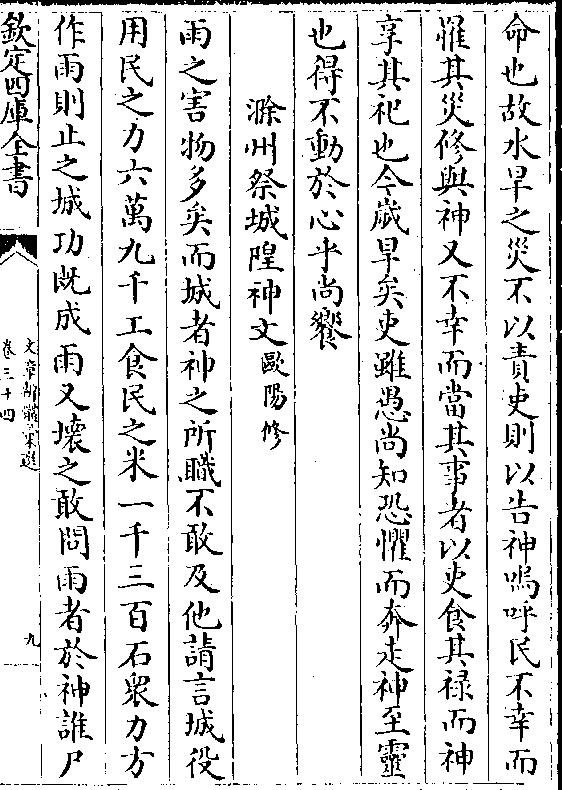 命也故水旱之災不以責吏則以告神嗚呼民不幸而
罹其災修與神又不幸而當其事者以吏食其祿而神
享其祀也今歲旱矣吏雖愚尚知恐懼而奔走神至靈
也得不動於心乎尚饗
滁州祭城隍神文歐陽修
雨之害物多矣而城者神之所職不敢及他請言城役
用民之力六萬九千工食民之米一千三百石衆力方
作雨則止之城功既成雨又壞之敢問雨者於神誰尸
欽定四庫全書
文章辨體彚選
卷三十四
九